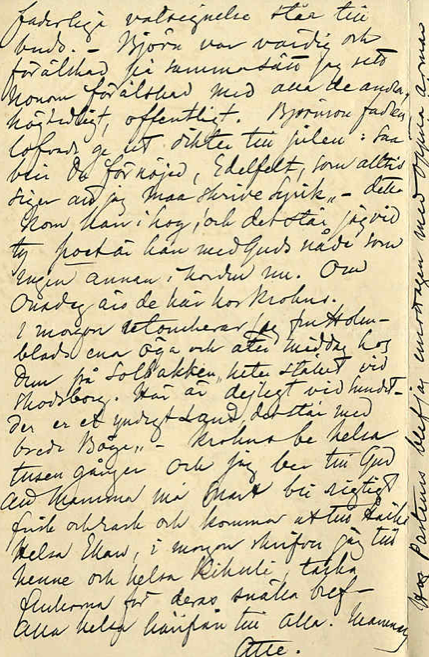 faderliga välsignelse står till
buds. – Björn var värdig och
förälskad på samma sätt jag sett
honom förälskad med alla de andra,
högtidligt, offentligt. Björnson fadren
lofvade ge ut dikter till julen: "Saa
blir Du förnöjd, Edelfelt, som alltid
siger att jag maa skrive lyrik" – dette
kom han i hog, och det står jag vid
ty poet är han med Guds nåde som
ingen annan i norden nu. Om
Onsdag äro de här hos Krohns.
I morgon jag fru Holm-
blads ena öga och äter middag hos
dem på Solbakken, heter stället vid
Skodsborg. Här är dejligt vid Sundet –
Der er et yndigt Land, det står med
brede Böge" – Krohns be helsa
tusen gånger och jag ber till Gud
att Mamma må snart bli rigtigt
frisk och rask och komma ut till Haiko
Helsa Ekan, i morgon skrifver jag till
henne och helsa Kihuli, tacka
flickorna för deras snälla bref –
Alla helsa härifrån till Alla. Mammas
Atte.
Hos blef jag emottagen med öppna armar